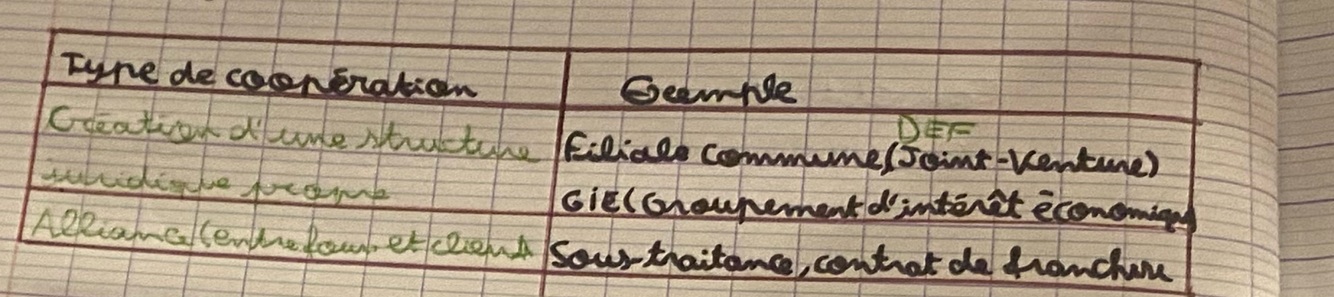 Type de coopération
Exemple
Création d'une structure
juridique propre
DEF
Filiale commune (Joint-Venture)
GIE (Groupement d'intérêt économique)
Alliance (entre four. et client)
Sous-traitance, contrat de franchise